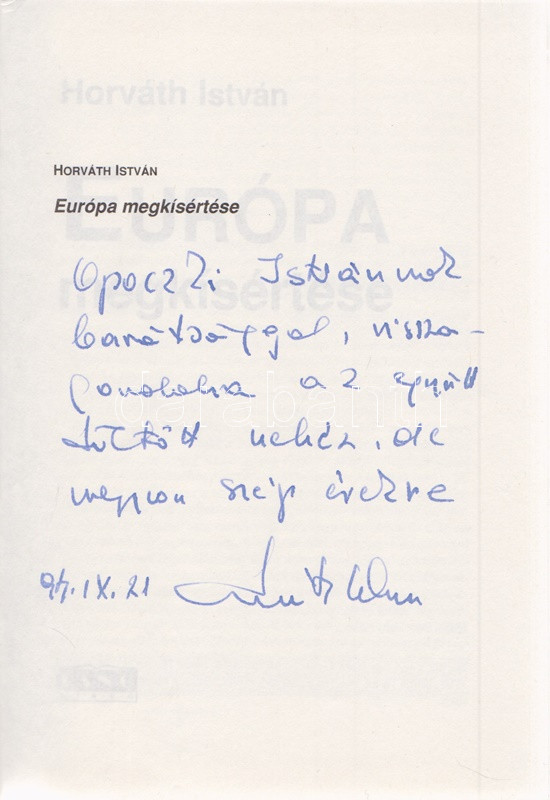 Horváth István
HORVÁTH ISTVÁN
EURÓPA
Európa megkísértése
Opoczki Istvánnak
megkísértése
barátsággal, vissza-
gondolva az együtt
darabanth
töltött nehéz, de
nagyon szép évekre
94. IX. 21